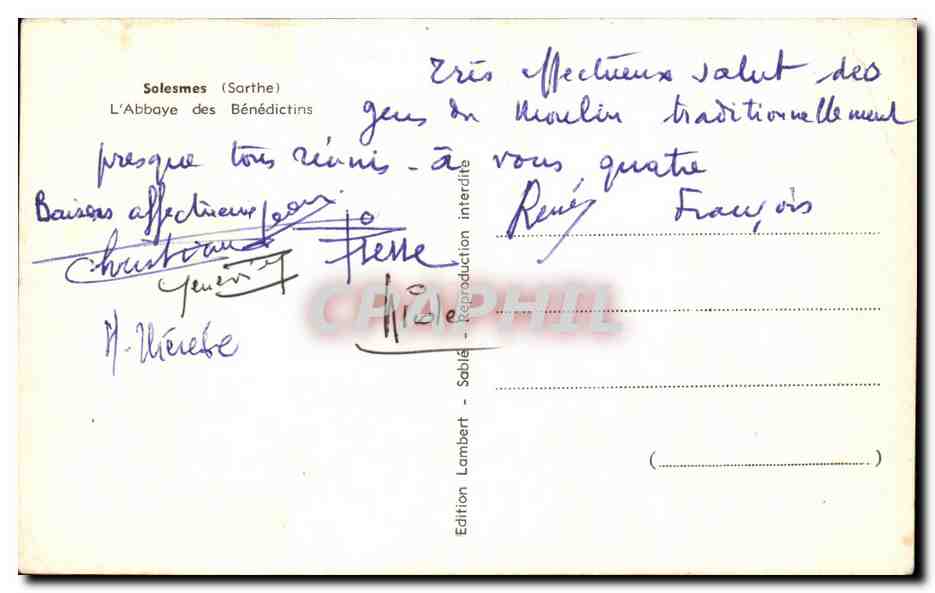 Solesmes (Sarthe)
L'Abbaye des Bénédictins
Très affectueux salut des
gens du Moulin traditionnellement
presque tous réunis - à vous quatre
Baisers affectueux
René François
Jo
Christiane Pierre
Geneviève
Nicole
M. Thérèse
Edition Lambert - Sablé - Reproduction interdite
(                    )
CPAPHIL